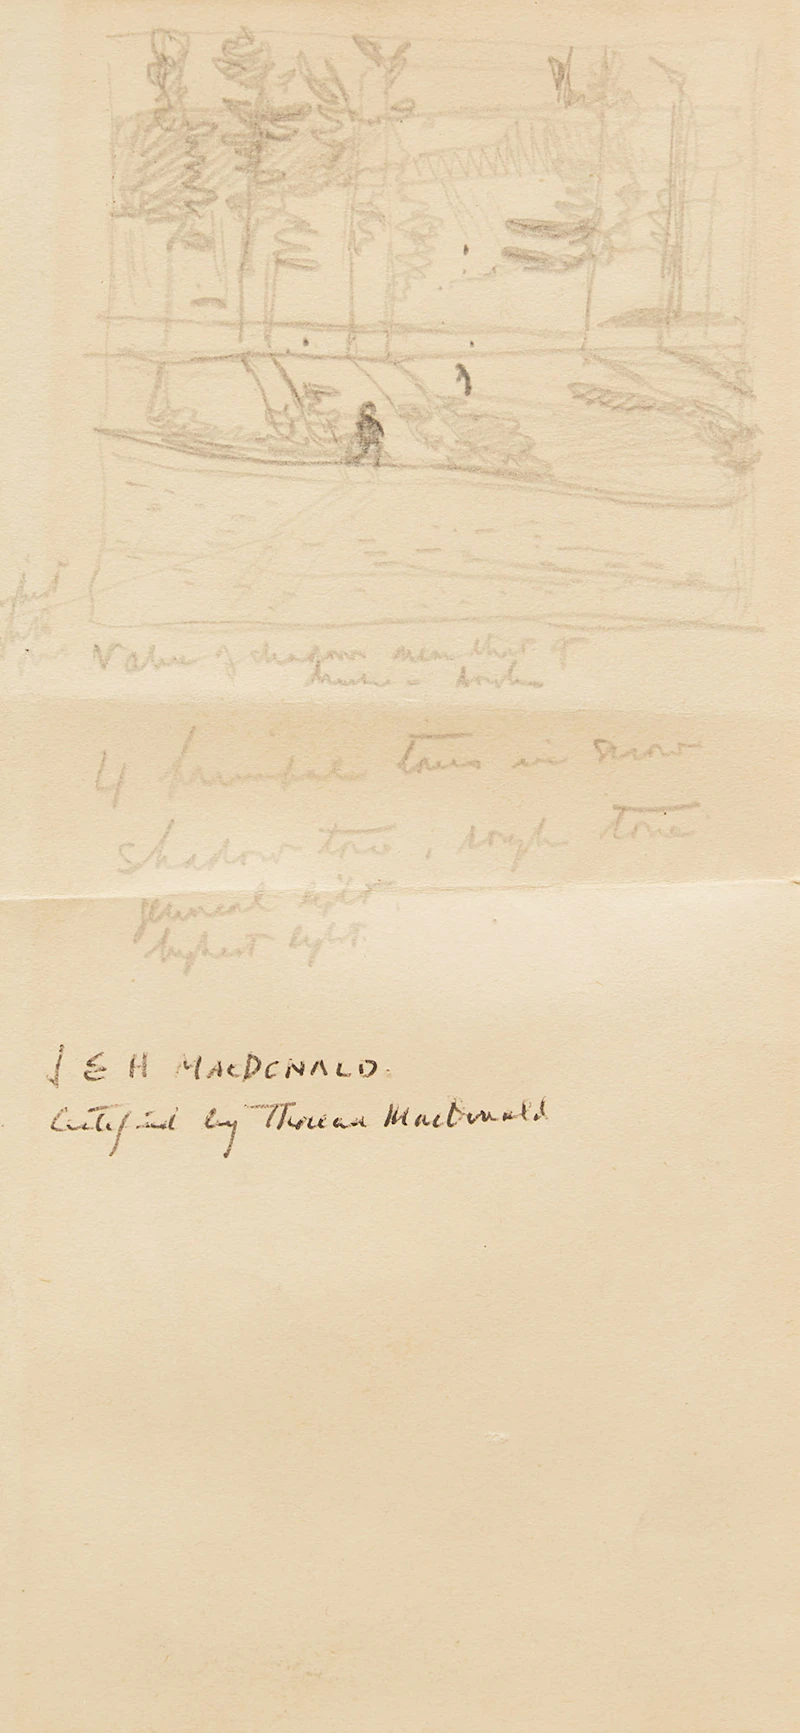 highest
Value of shadows near that of
4 principal tones in snow
shadow tone, rough tone
general light
highest light
J E H MACDONALD.
Certified by Thoreau MacDonald